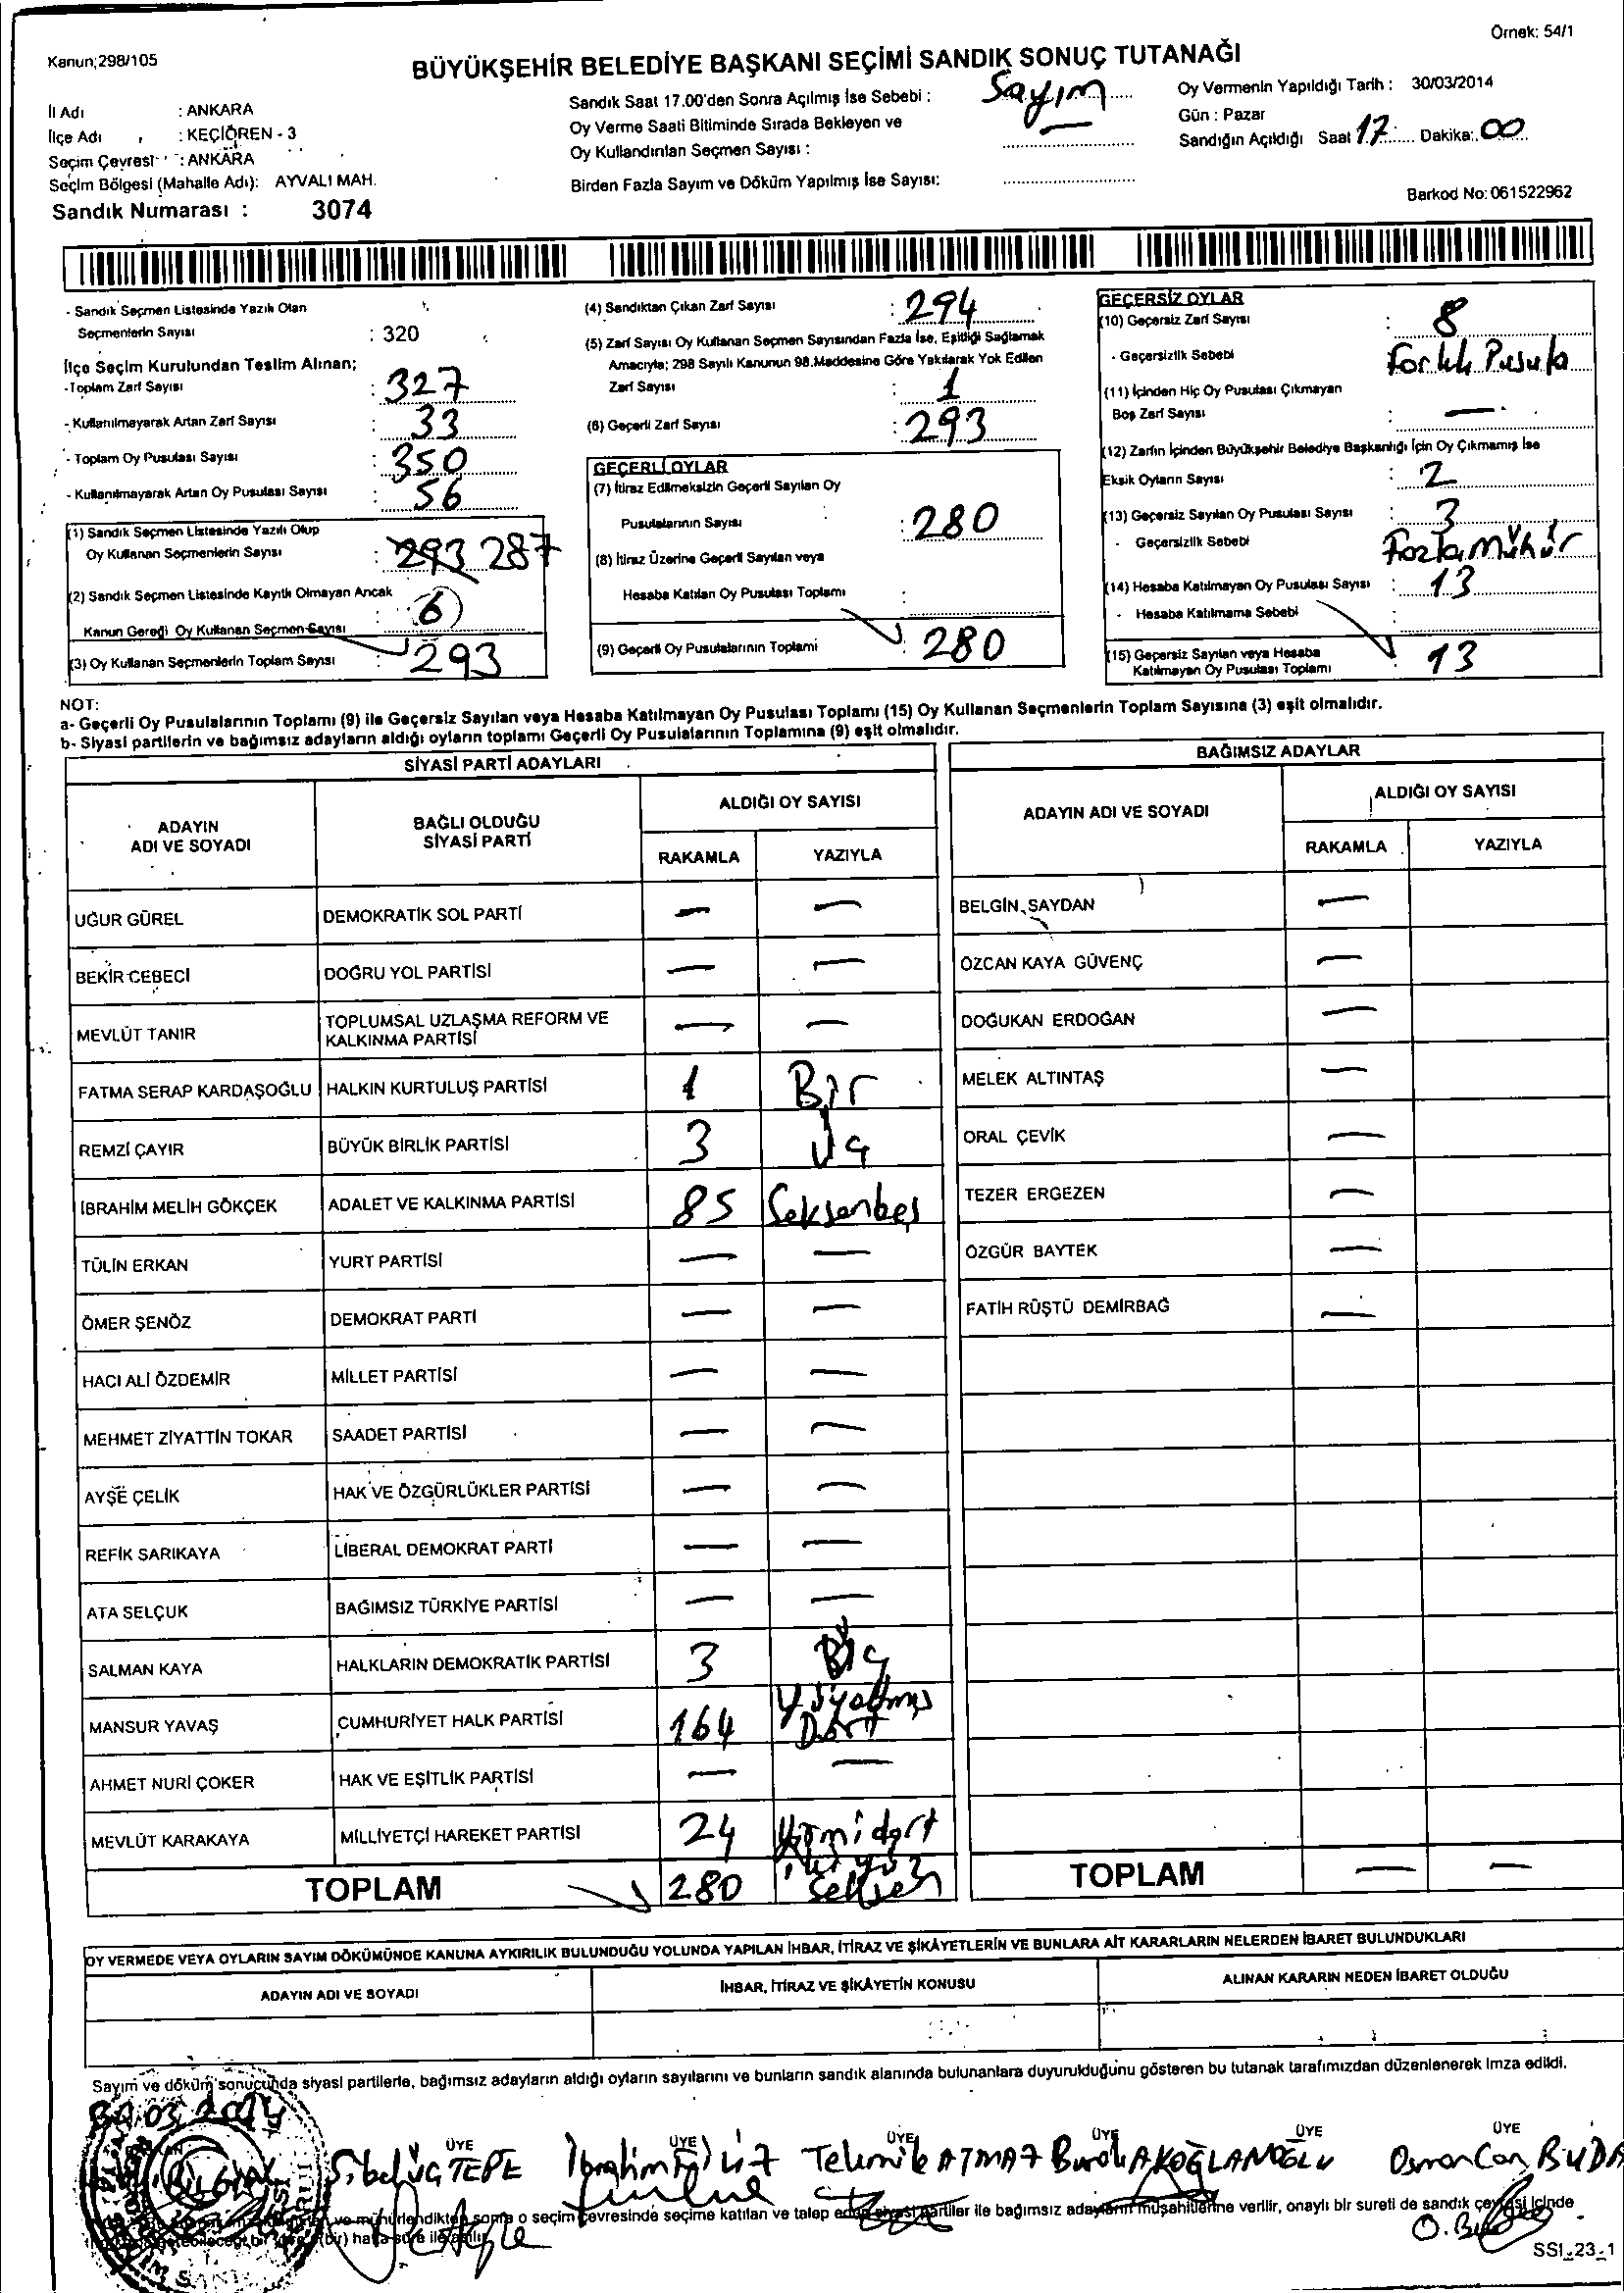 Örnek: 54/1
Kanun;298/105
BÜYÜKŞEHİR BELEDİYE BAŞKANI SEÇİMİ SANDIK SONUÇ TUTANAĞI
İl Adı : ANKARA
İlçe Adı : KEÇİÖREN - 3
Seçim Çevresi : ANKARA
Seçim Bölgesi (Mahalle Adı): AYVALI MAH.
Sandık Numarası : 3074
Sandık Saat 17.00'den Sonra Açılmış İse Sebebi : Sayım
Oy Verme Saati Bitiminde Sırada Bekleyen ve
Oy Kullandırılan Seçmen Sayısı :
Birden Fazla Sayım ve Döküm Yapılmış İse Sayısı:
Oy Vermenin Yapıldığı Tarih : 30/03/2014
Gün : Pazar
Sandığın Açıldığı Saat 17 Dakika: 00
Barkod No: 061522962
- Sandık Seçmen Listesinde Yazılı Olan
Seçmenlerin Sayısı : 320
İlçe Seçim Kurulundan Teslim Alınan;
-Toplam Zarf Sayısı : 327
- Kullanılmayarak Artan Zarf Sayısı : 33
- Toplam Oy Pusulası Sayısı : 350
- Kullanılmayarak Artan Oy Pusulası Sayısı : 56
(1) Sandık Seçmen Listesinde Yazılı Olup
Oy Kullanan Seçmenlerin Sayısı : 293 287
(2) Sandık Seçmen Listesinde Kayıtlı Olmayan Ancak
Kanun Gereği Oy Kullanan Seçmen Sayısı : 6
(3) Oy Kullanan Seçmenlerin Toplam Sayısı : 293
(4) Sandıktan Çıkan Zarf Sayısı : 294
(5) Zarf Sayısı Oy Kullanan Seçmen Sayısından Fazla İse, Eşitliği Sağlamak
Amacıyla; 298 Sayılı Kanunun 98.Maddesine Göre Yakılarak Yok Edilen
Zarf Sayısı : 1
(6) Geçerli Zarf Sayısı : 293
GEÇERLİ OYLAR
(7) İtiraz Edilmeksizin Geçerli Sayılan Oy
Pusulalarının Sayısı : 280
(8) İtiraz Üzerine Geçerli Sayılan veya
Hesaba Katılan Oy Pusulası Toplamı :
(9) Geçerli Oy Pusulalarının Toplamı : 280
GEÇERSİZ OYLAR
(10) Geçersiz Zarf Sayısı : 8
- Geçersizlik Sebebi Farklı Pusula
(11) İçinden Hiç Oy Pusulası Çıkmayan
Boş Zarf Sayısı : —
(12) Zarfın İçinden Büyükşehir Belediye Başkanlığı İçin Oy Çıkmamış İse
Eksik Oyların Sayısı : 2
(13) Geçersiz Sayılan Oy Pusulası Sayısı : 3
- Geçersizlik Sebebi Fazla Mühür
(14) Hesaba Katılmayan Oy Pusulası Sayısı : 13
- Hesaba Katılmama Sebebi
(15) Geçersiz Sayılan veya Hesaba
Katılmayan Oy Pusulası Toplamı : 13
NOT:
a- Geçerli Oy Pusulalarının Toplamı (9) ile Geçersiz Sayılan veya Hesaba Katılmayan Oy Pusulası Toplamı (15) Oy Kullanan Seçmenlerin Toplam Sayısına (3) eşit olmalıdır.
b- Siyasi partilerin ve bağımsız adayların aldığı oyların toplamı Geçerli Oy Pusulalarının Toplamına (9) eşit olmalıdır.
SİYASİ PARTİ ADAYLARI
ADAYIN ADI VE SOYADI
BAĞLI OLDUĞU SİYASİ PARTİ
ALDIĞI OY SAYISI
RAKAMLA YAZIYLA
UĞUR GÜREL DEMOKRATİK SOL PARTİ — —
BEKİR CEBECİ DOĞRU YOL PARTİSİ — —
MEVLÜT TANIR TOPLUMSAL UZLAŞMA REFORM VE KALKINMA PARTİSİ — —
FATMA SERAP KARDAŞOĞLU HALKIN KURTULUŞ PARTİSİ 1 Bir
REMZİ ÇAYIR BÜYÜK BİRLİK PARTİSİ 3 Üç
İBRAHİM MELİH GÖKÇEK ADALET VE KALKINMA PARTİSİ 85 Seksenbeş
TÜLİN ERKAN YURT PARTİSİ — —
ÖMER ŞENÖZ DEMOKRAT PARTİ — —
HACI ALİ ÖZDEMİR MİLLET PARTİSİ — —
MEHMET ZİYATTİN TOKAR SAADET PARTİSİ — —
AYŞE ÇELİK HAK VE ÖZGÜRLÜKLER PARTİSİ — —
REFİK SARIKAYA LİBERAL DEMOKRAT PARTİ — —
ATA SELÇUK BAĞIMSIZ TÜRKİYE PARTİSİ — —
SALMAN KAYA HALKLARIN DEMOKRATİK PARTİSİ 3
MANSUR YAVAŞ CUMHURİYET HALK PARTİSİ 164 Yüzyatmış Dört
AHMET NURİ ÇOKER HAK VE EŞİTLİK PARTİSİ — —
MEVLÜT KARAKAYA MİLLİYETÇİ HAREKET PARTİSİ 24 Yirmidört
TOPLAM 280 ikiyüz Seksen
BAĞIMSIZ ADAYLAR
ADAYIN ADI VE SOYADI
ALDIĞI OY SAYISI
RAKAMLA YAZIYLA
BELGİN SAYDAN —
ÖZCAN KAYA GÜVENÇ —
DOĞUKAN ERDOĞAN —
MELEK ALTINTAŞ —
ORAL ÇEVİK —
TEZER ERGEZEN —
ÖZGÜR BAYTEK —
FATİH RÜŞTÜ DEMİRBAĞ —
TOPLAM — —
OY VERMEDE VEYA OYLARIN SAYIM DÖKÜMÜNDE KANUNA AYKIRILIK BULUNDUĞU YOLUNDA YAPILAN İHBAR, İTİRAZ VE ŞİKÂYETLERİN VE BUNLARA AİT KARARLARIN NELERDEN İBARET BULUNDUKLARI
ADAYIN ADI VE SOYADI İHBAR, İTİRAZ VE ŞİKÂYETİN KONUSU ALINAN KARARIN NEDEN İBARET OLDUĞU
Sayım ve döküm sonucunda siyasi partilerle, bağımsız adayların aldığı oyların sayılarını ve bunların sandık alanında bulunanlara duyurulduğunu gösteren bu tutanak tarafımızdan düzenlenerek imza edildi.
30.03.2014
ÜYE ÜYE ÜYE ÜYE ÜYE
Sibel ÜÇTEPE İbrahim Telemile ATMAZ Burak AKOĞLANOĞLU Osman Can BUDA
ve mühürlendikten sonra o seçim çevresinde seçime katılan ve talep eden siyasi partiler ile bağımsız adayların müşahitlerine verilir, onaylı bir sureti de sandık çevresi içinde
(bir) hafta süre ile asılır.
SSI_23_1